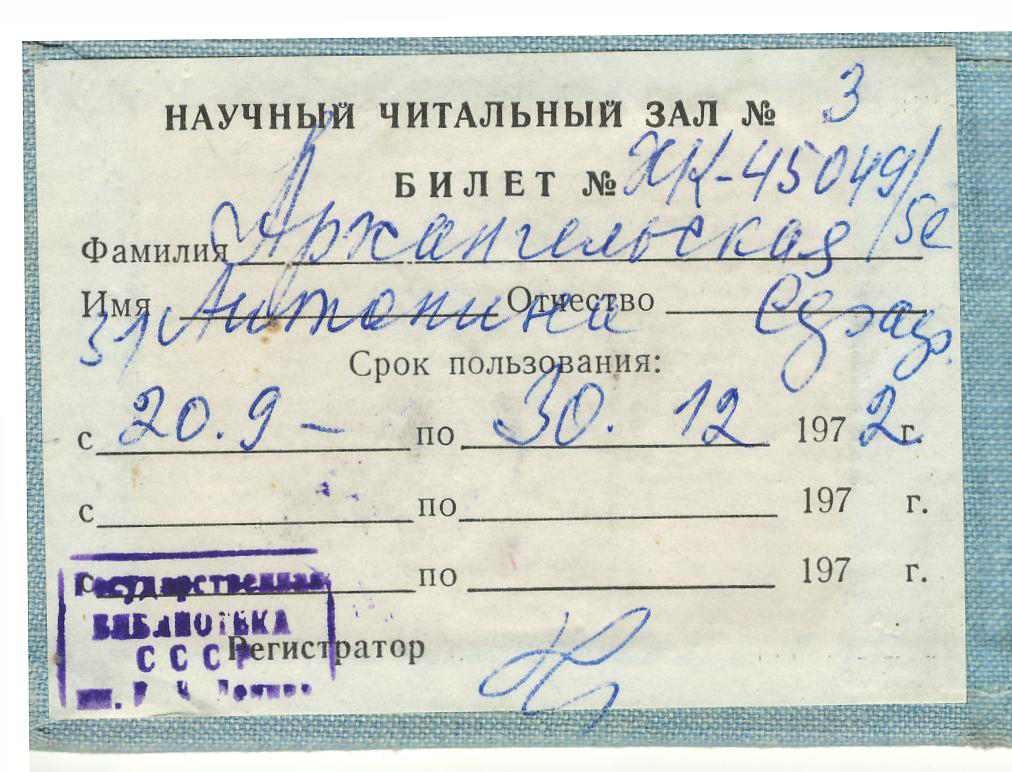 НАУЧНЫЙ ЧИТАЛЬНЫЙ ЗАЛ № 3
БИЛЕТ № ХК-45049/
Фамилия Архангельская /5е
Имя Антонина Отчество
Срок пользования:
с 20.9 – по 30. 12 1972 г.
с по 197 г.
с по 197 г.
Государственная
БИБЛИОТЕКА
СССР
им. В. И. Ленина
Регистратор